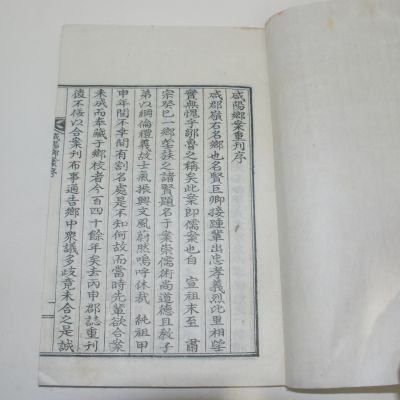 咸陽鄉案重刊序
咸郡嶺右名鄉也名賢巨卿接踵輩出忠孝義烈比里相望
實無愧乎鄒魯之稱矣此案即儒案也自 宣祖末至 肅
宗癸巳一鄉望族之諸賢題名于案崇儒術尚道德且敦子
弟以綱倫禮義故士氣振興文風蔚然嗚呼休哉 純祖甲
申年間不幸間有割名處是不知何故而當時先輩欲合案
未成而奉藏于鄉校者今百四十餘年矣去丙申郡誌重刊
後不極以合案刊布事通告鄉中衆議多歧竟未合之是誠
咸陽鄉案序